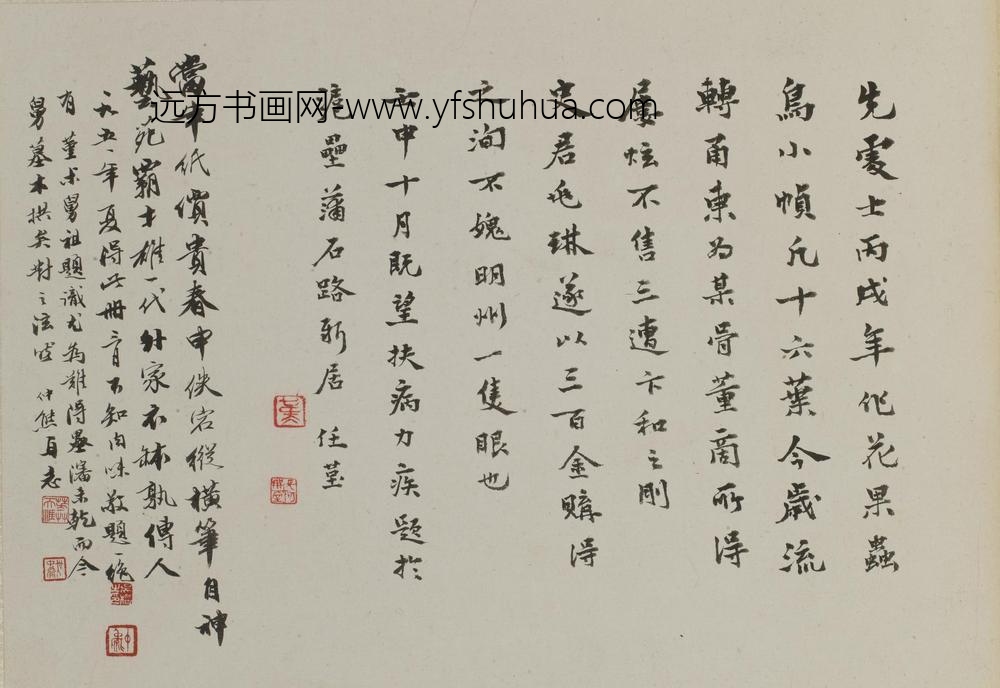 先處士丙戌年作花果蟲
鳥小幀凡十六葉今歲流
轉甬東為某骨董商所得
居炫不售三遭卞和之刖
吳君兆琳遂以三百金購得
之洵不媿明州一隻眼也
壬申十月既望扶病力疾題於
滬壘蒲石路新居 任堇
當年紙價貴春申佚宕縱橫筆自神
藝苑霸才雄一代外家衣缽孰傳人
一九五一年夏得此冊三月不知肉味敬題一絕
有堇叔舅祖題識尤為難得墨瀋未乾而今
舅墓木拱矣對之泫然 仲熊自志
远方书画网-www.yfshuhua.com